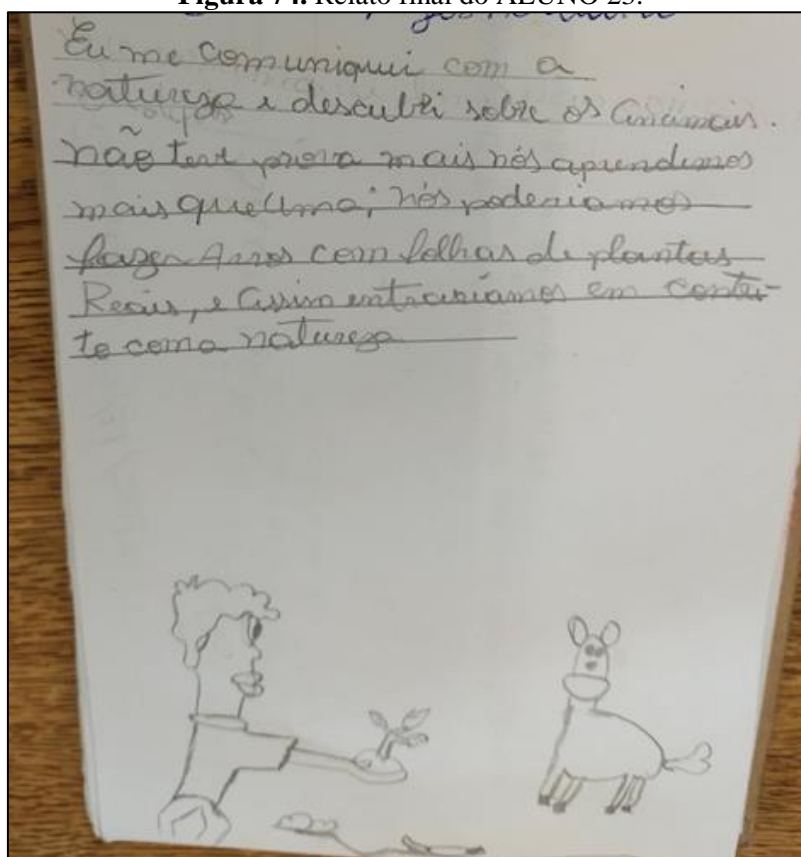 Figura 74. Relato final do ALUNO 25.
Eu me comuniquei com a
natureza e descubri sobre os animais.
não teve prova mais nós aprendemos
mais que uma; nós poderiamos
fazer com folhas de plantas
Reais, e assim entrariamos em conta-
to com a natureza